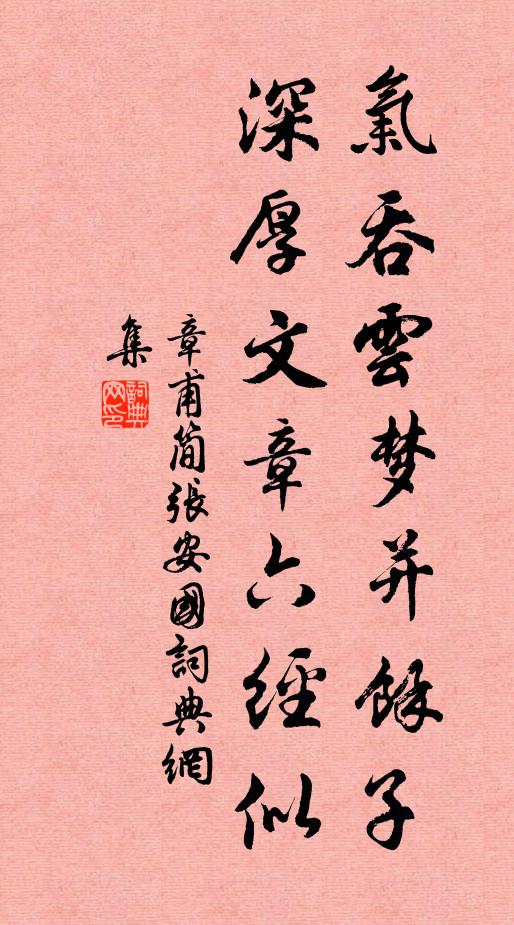 氣吞雲梦并餘子
深厚文章六經似
章甫简張安國詞典網
集
詞典
网印